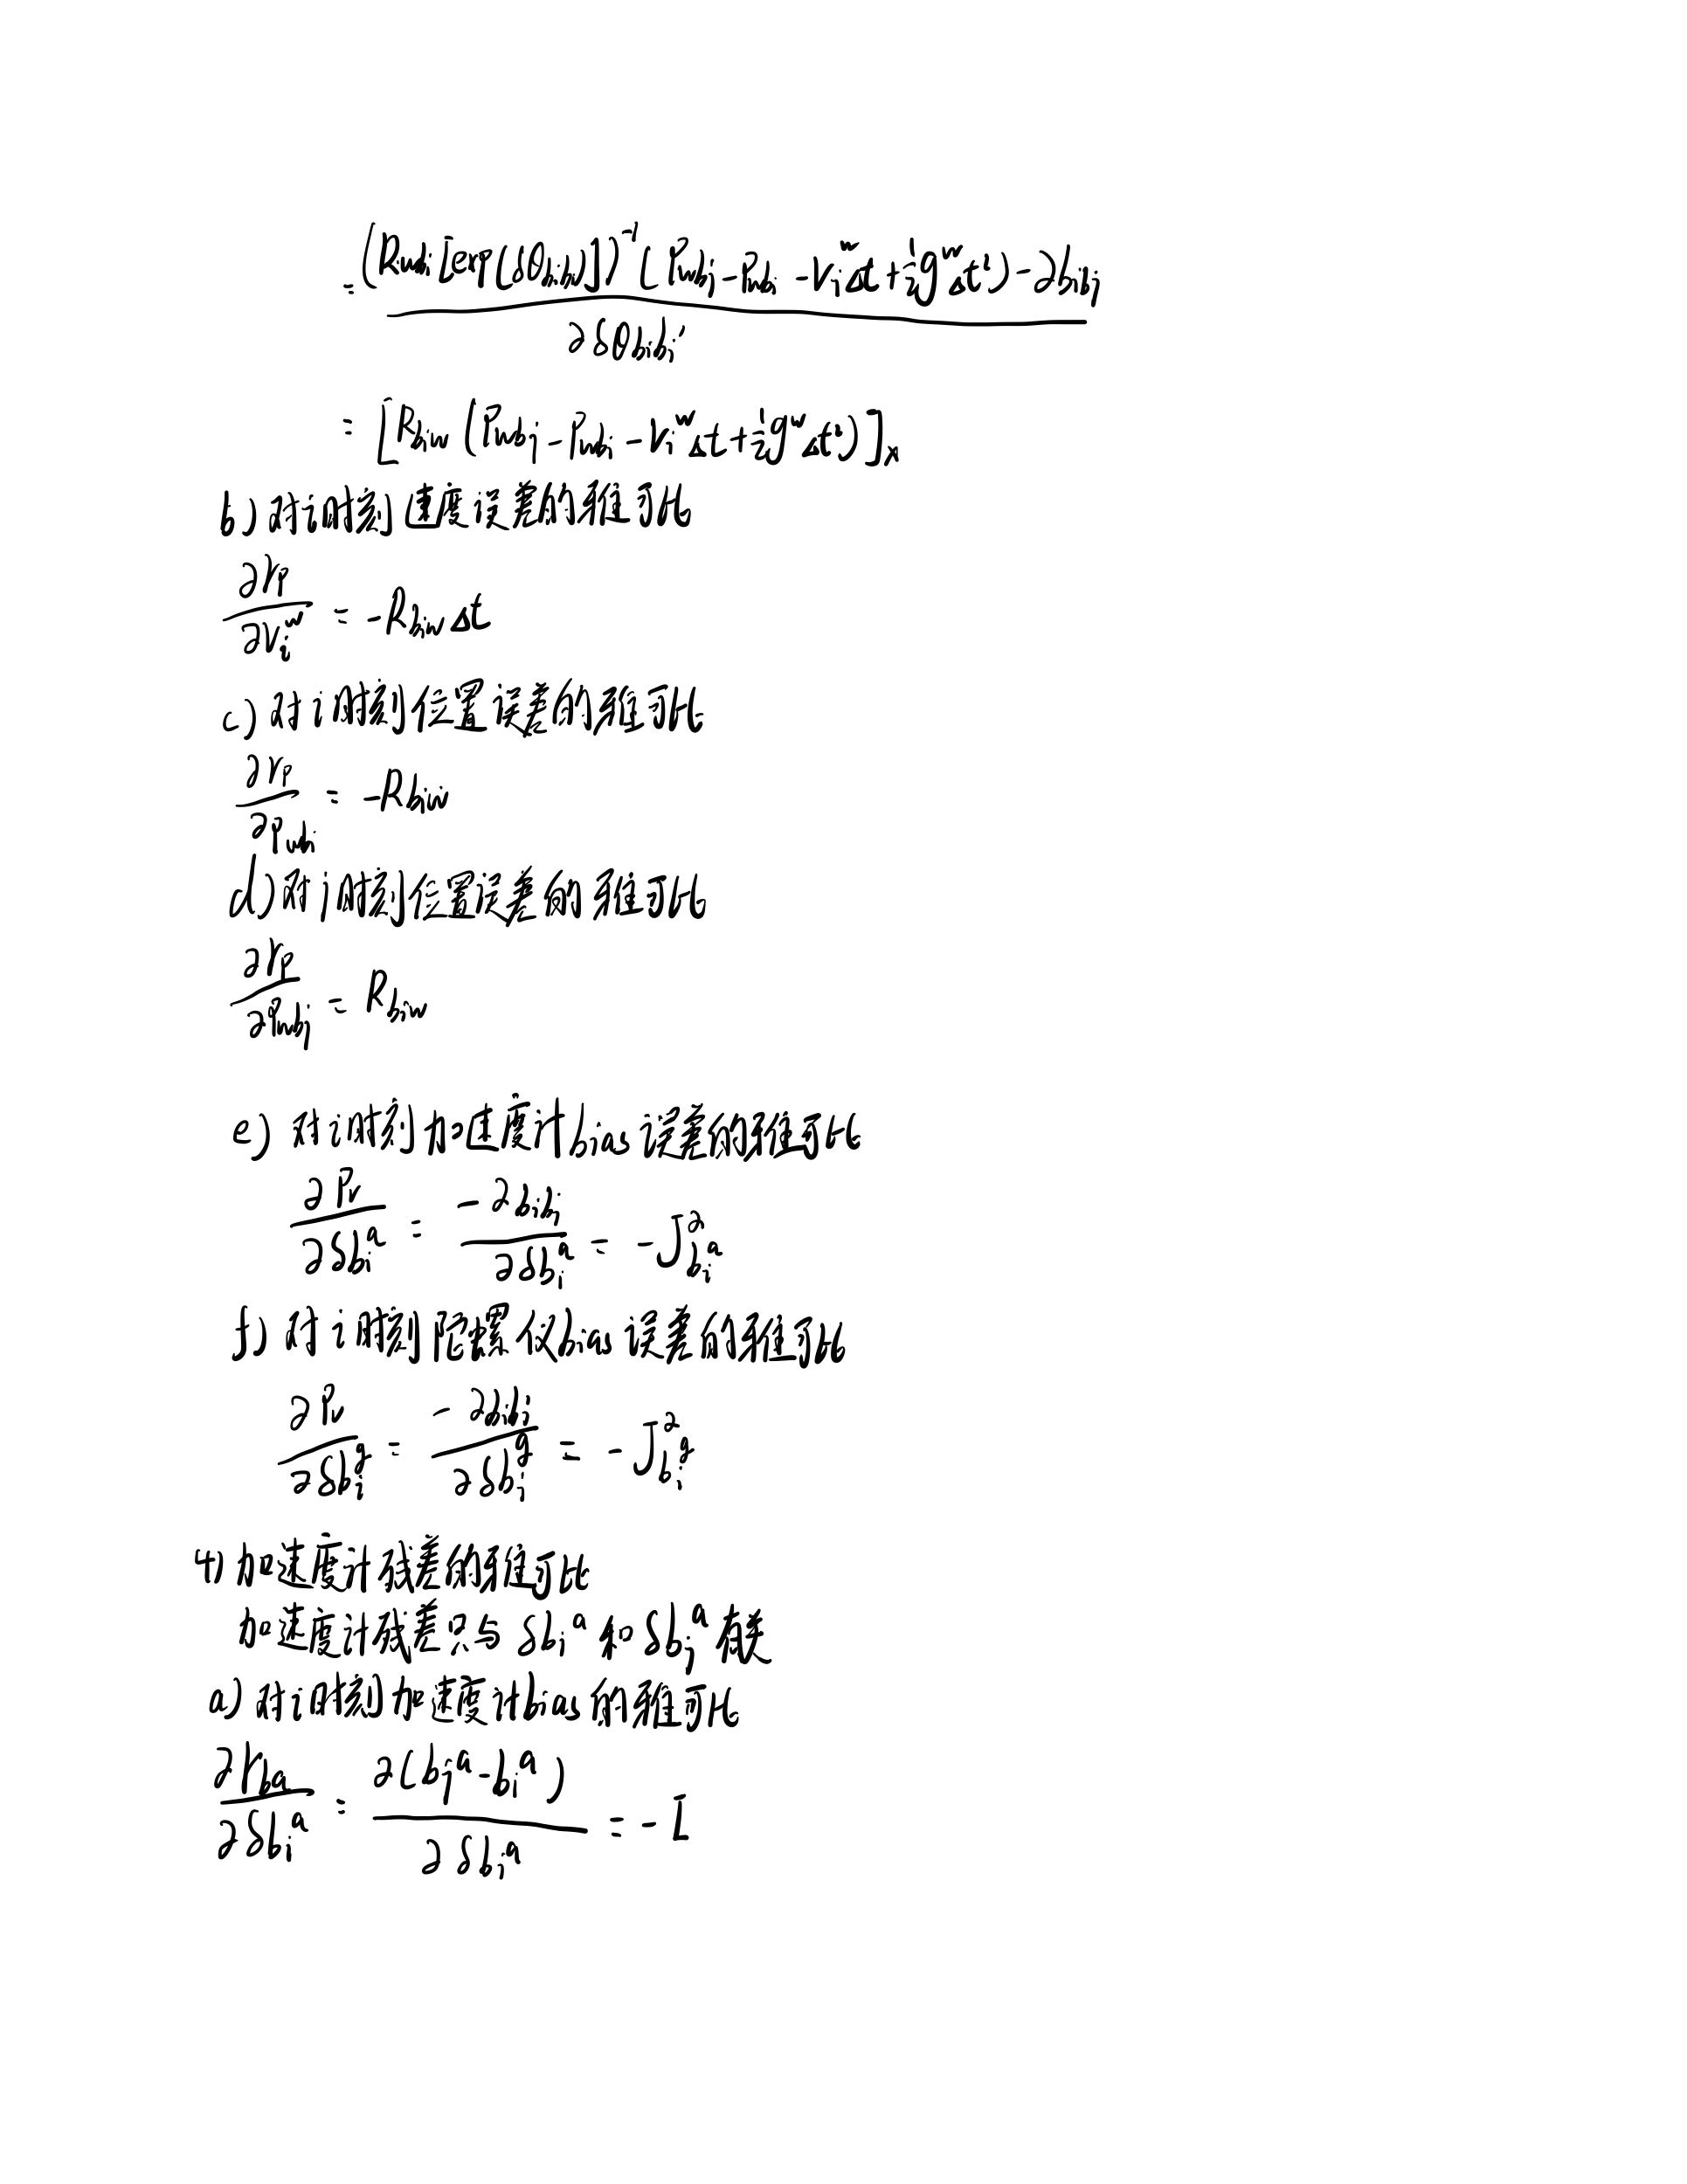 = (R_{wb_i}[exp(δθ_{b_ib_i'})])^{-1}(P_{wb_j} - P_{wb_i} - V_i^wΔt + ½g^wΔt²) - 2_{b_ib_j}
∂δθ_{b_ib_i'}
= [R_{b_iw}(P_{wb_j} - P_{wb_i} - V_i^wΔt + ½g^wΔt²)]_×
b) 对i时刻速度误差的雅可比
∂r_p / ∂V_i^w = -R_{b_iw}Δt
c) 对i时刻位置误差的雅可比
∂r_p / ∂P_{wb_i} = -R_{b_iw}
d) 对j时刻位置误差的雅可比
∂r_p / ∂P_{wb_j} = R_{b_iw}
e) 对i时刻加速度计bias误差的雅可比
∂P_r / ∂δb_i^a = -∂_{b_ib_j} / ∂δb_i^a = -J_{b_i^a}^2
f) 对i时刻陀螺仪bias误差的雅可比
∂P_r / ∂δb_i^g = -∂_{b_ib_j} / ∂δb_i^g = -J_{b_i^g}^2
4) 加速度计残差的雅可比
加速度计残差只与 δb_i^a 和 δb_j^a 有关
a) 对i时刻加速度计bias的雅可比
∂r_{ba} / ∂δb_i^a = ∂(b_j^a - b_i^a) / ∂δb_i^a = -I